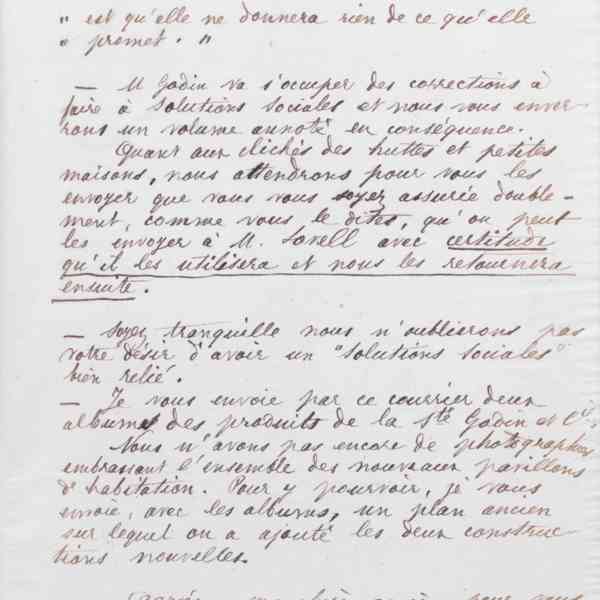 " est qu'elle ne donnera rien de ce qu'elle
" promet. "
— M Godin va s'occuper des corrections à
faire à Solutions sociales et nous vous enver-
rons un volume annoté en conséquence.
Quant aux clichés des huttes et petites
maisons, nous attendrons pour vous les
envoyer que vous vous soyez assurée double-
ment, comme vous le dites, qu'on peut
les envoyer à M. Lovell avec certitude
qu'il les utilisera et nous les retournera
ensuite.
— Soyez tranquille nous n'oublierons pas
votre désir d'avoir un "Solutions sociales"
bien relié.
— Je vous envoie par ce courrier deux
albums des produits de la Sté Godin et Cie
Nous n'avons pas encore de photographies
embrassant l'ensemble des nouveaux pavillons
d'habitation. Pour y pourvoir, je vous
envoie, avec les albums, un plan ancien
sur lequel on a ajouté les deux construc-
tions nouvelles.
pour vous